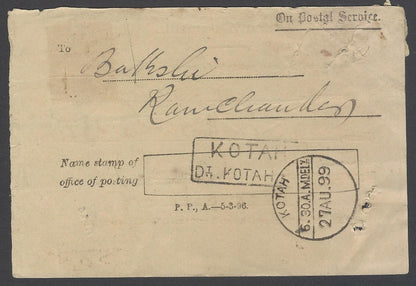 On Postal Service.
To
Bakshi
Ramchander
KOTAH
Dt. KOTAH
Name stamp of
office of posting
KOTAH
6.30A.M DELY.
27AU.99
P. P., A.—5-3-96.